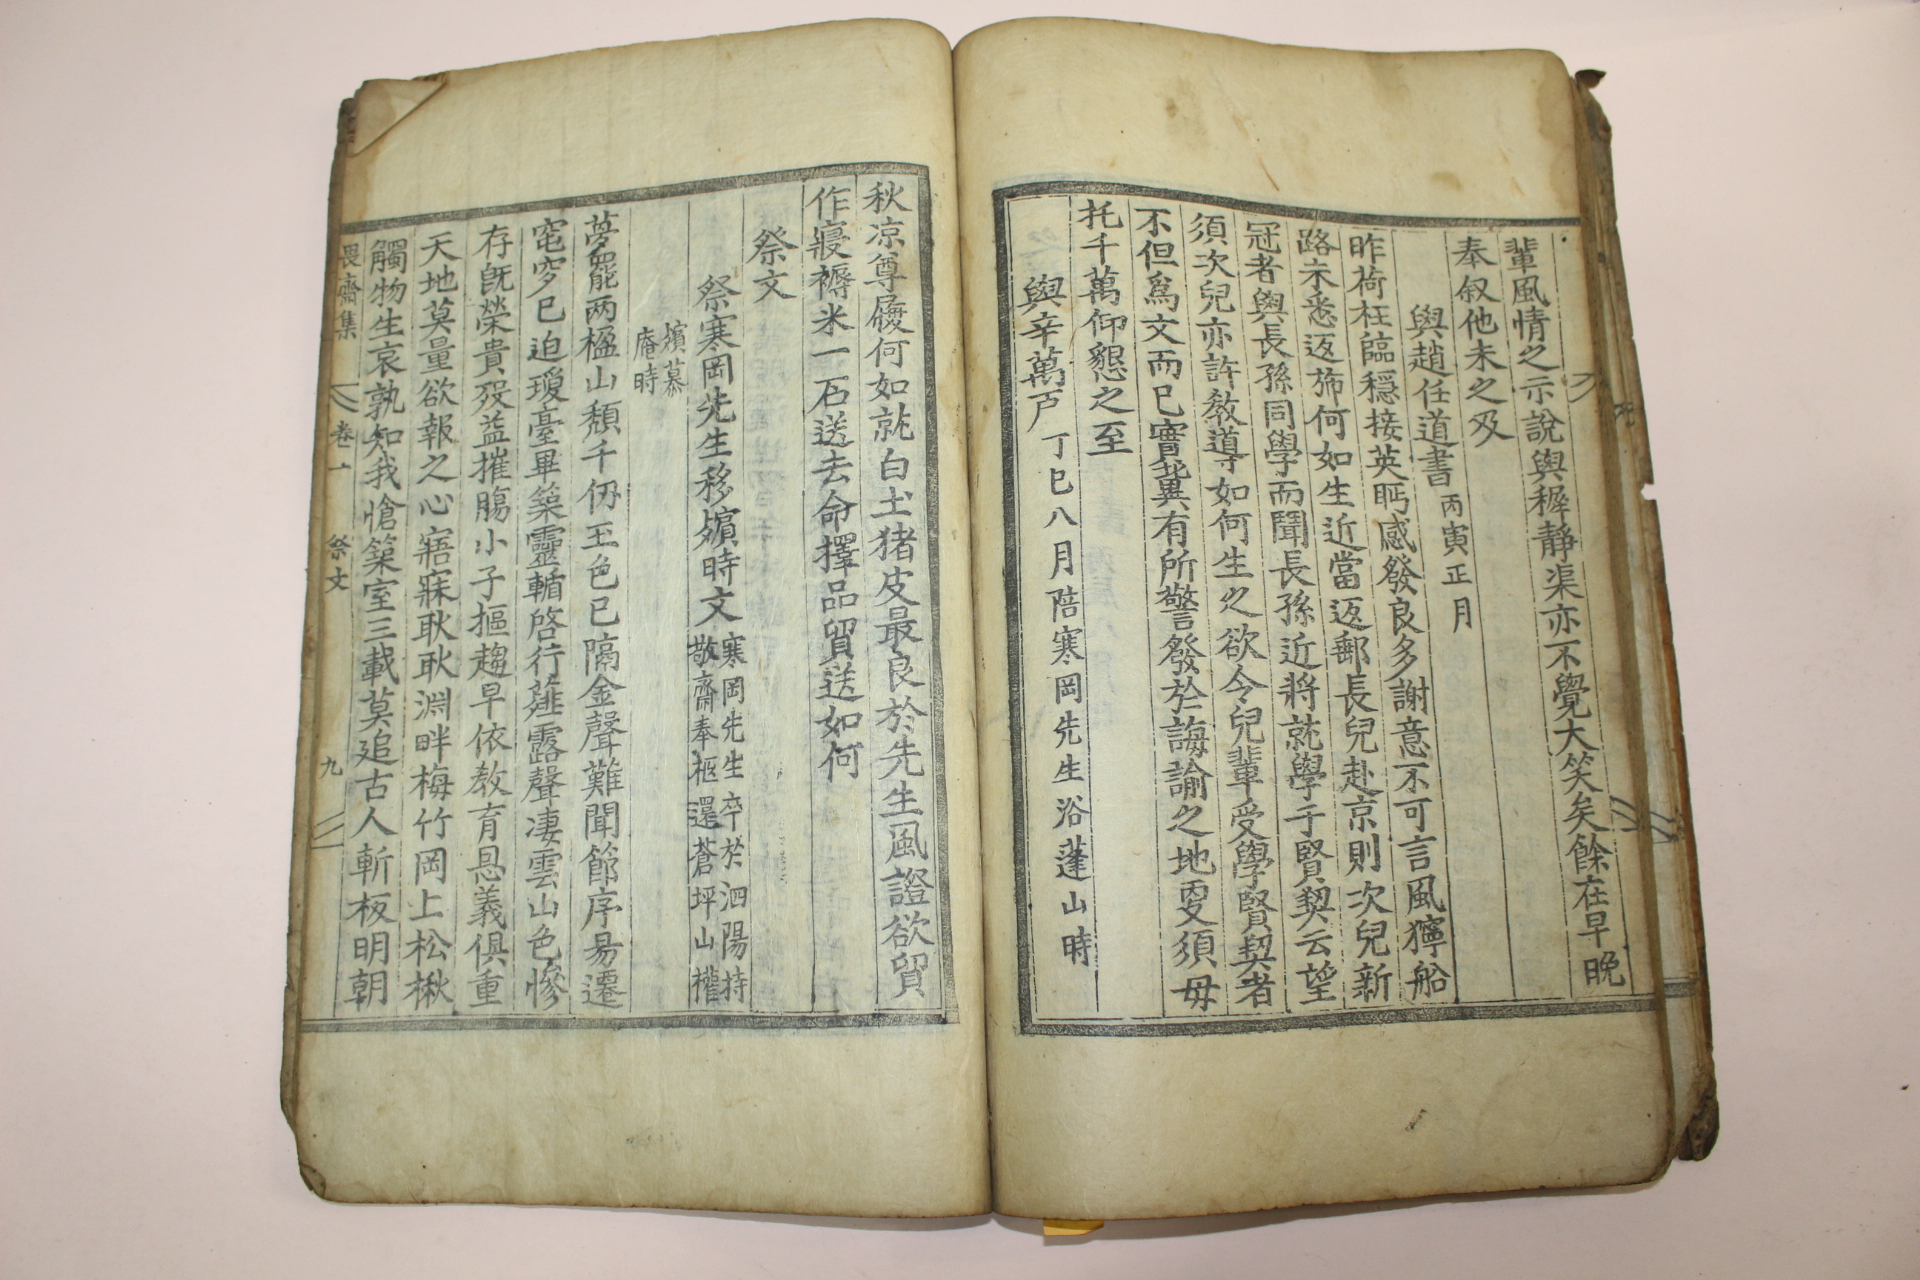 輩風情之示說與穉靜渠亦不覺大笑矣餘在早晚
奉叙他未之及
與趙任道書 丙寅正月
昨荷枉臨穩接英眄感發良多謝意不可言風獰船
路未悉返旆何如生近當返鄉長兒赴京則次兒新
冠者與長孫同學而聞長孫近將就學于賢契云望
須次兒亦許教導如何生之欲令兒輩受學賢契者
不但爲文而已實冀有所警發於誨諭之地更須毋
托千萬仰懇之至
與辛萬戶 丁巳八月陪寒岡先生浴蓬山時
秋凉尊履何如就白土猪皮最良於先生風證欲貿
作寢褥米一石送去命擇品貿送如何
祭文
祭寒岡先生移殯時文 寒岡先生卒於泗陽持
敬齋奉柩還蒼坪山權
殯慕
庵時
夢罷两楹山頹千仞玉色已隔金聲難聞節序易遷
窀穸已迫瓊臺畢築靈輴啓行薤露聲凄雲山色慘
存旣榮貴歿益摧膓小子摳趨早依教育恩義俱重
天地莫量欲報之心寤寐耿耿淵畔梅竹岡上松楸
觸物生哀孰知我愴築室三載莫追古人斬板明朝
畏齋集 卷一 祭文 九